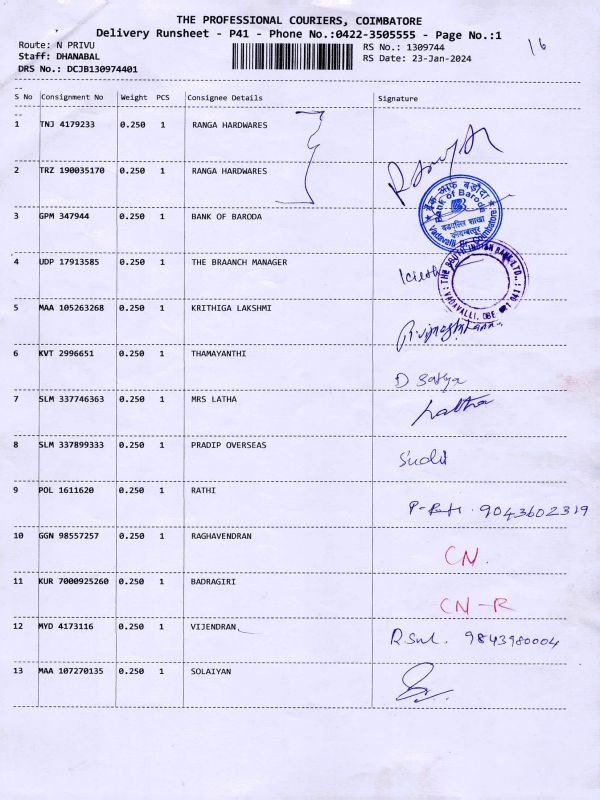 THE PROFESSIONAL COURIERS, COIMBATORE
Delivery Runsheet - P41 - Phone No.:0422-3505555 - Page No.:1
Route: N PRIVU
RS No.: 1309744
16
Staff: DHANABAL
RS Date: 23-Jan-2024
DRS No.: DCJB130974401
--
S No Consignment No Weight PCS Consignee Details Signature
--
1 TNJ 4179233 0.250 1 RANGA HARDWARES
2 TRZ 190035170 0.250 1 RANGA HARDWARES
3 GPM 347944 0.250 1 BANK OF BARODA
बैंक ऑफ बड़ौदा
Bank of Baroda
Vadavalli Br. Coimbatore
4 UDP 17913585 0.250 1 THE BRAANCH MANAGER
THE SOUTH INDIAN BANK LTD.,
VADAVALLI, CBE
5 MAA 105263268 0.250 1 KRITHIGA LAKSHMI
6 KVT 2996651 0.250 1 THAMAYANTHI D Sathya
7 SLM 337746363 0.250 1 MRS LATHA Latha
8 SLM 337899333 0.250 1 PRADIP OVERSEAS
9 POL 1611620 0.250 1 RATHI 9043602319
10 GGN 98557257 0.250 1 RAGHAVENDRAN CN.
11 KUR 7000925260 0.250 1 BADRAGIRI CN-R
12 MYD 4173116 0.250 1 VIJENDRAN 9843980004
13 MAA 107270135 0.250 1 SOLAIYAN